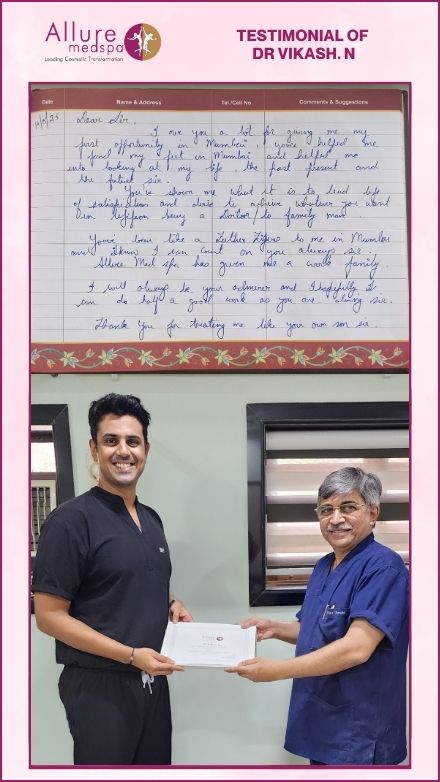 Allure
medspa
Leading Cosmetic Transformation
TESTIMONIAL OF
DR VIKASH. N
Date Name & Address Tel./Cell No. Comments & Suggestions
Dear Sir,
I owe you a lot for giving me my
first opportunity in Mumbai, you've helped me
find my feet in Mumbai and helped me
into looking at my life, the past present and
the future sir.
You've shown me what it is to lead life
of satisfaction and desire to achieve whatever you want
in life being a Doctor / a family man.
You've been like a Father Figure to me in Mumbai
and I know I can count on you always sir.
Allure Med spa has given me a work family.
I will always be your admirer and I hopefully I
can do half a good work as you are doing sir.
Thank you for treating me like your own son sir.
Allure